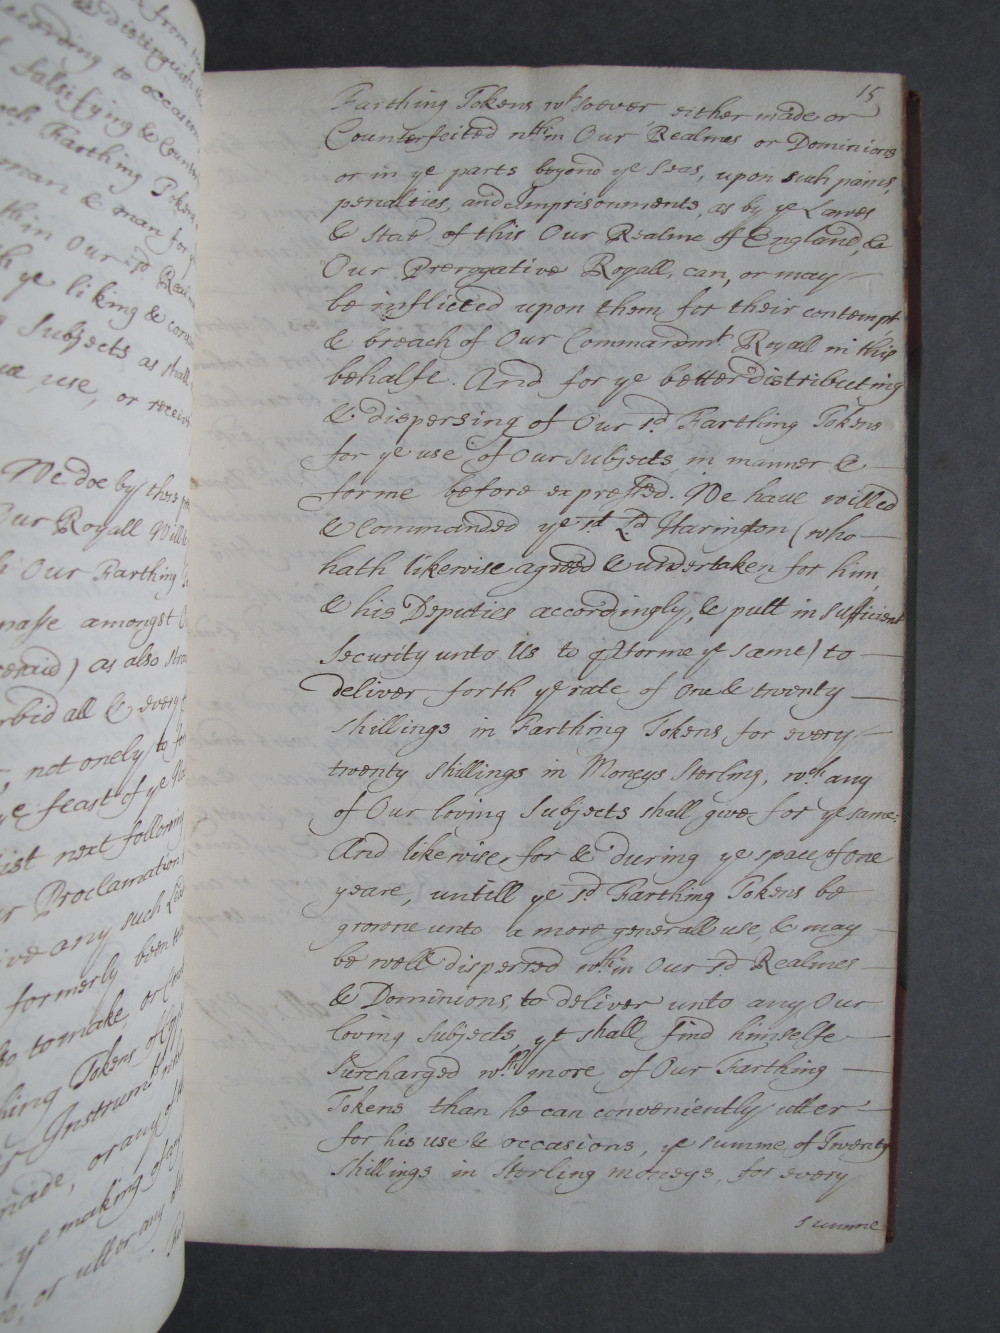 from
& distinguish
according to occasion
falsifying & Count
Farthing Tokens
man & man for
thin Our sd Realm
ye liking &
Subjects as shall
use, or receive
We doe by these
Our Royall Will
Our Farthing
passe amongst
as also
rbid all & every
not onely to
ye feast of ye
ist next following
Proclamation
ive any such
formerly been
so to make, or
hing Tokens of
Instrumts
made, or any of
ye making of any
or utter any
15
Farthing Tokens wtsoever either made or
Counterfeited wthin Our Realmes or Dominions
or in ye parts beyond ye Seas, upon such pains,
penalties, and Imprisonments, as by ye Lawes
& Stat. of this Our Realme of England, &
Our Prerogative Royall, can, or may
be inflicted upon them for their contempt
& breach of Our Commandmt Royall in this
behalfe. And for ye better distributing
& dispersing of Our sd Farthing Tokens
for ye use of Our Subjects in manner &
forme before expressed. We have willed
& Commanded ye sd Ld Harington (who
hath likewise agreed & undertaken for him
& his Deputies accordingly, & putt in sufficient
Security unto Us to pforme ye same) to
deliver forth ye rate of One & twenty
shillings in Farthing Tokens for every
twenty shillings in Moneys Sterling, wch any
of Our loving Subjects shall give for ye same:
And likewise, for & during ye space of one
yeare, untill ye sd Farthing Tokens be
growne unto a more generall use, & may
be well dispersed wthin Our sd Realmes
& Dominions, to deliver unto any Our
loving Subjects, yt shall find himselfe
Surcharged wth more of Our Farthing
Tokens than he can conveniently utter
for his use & occasions, ye summe of Twenty
shillings in Sterling moneys, for every
summe